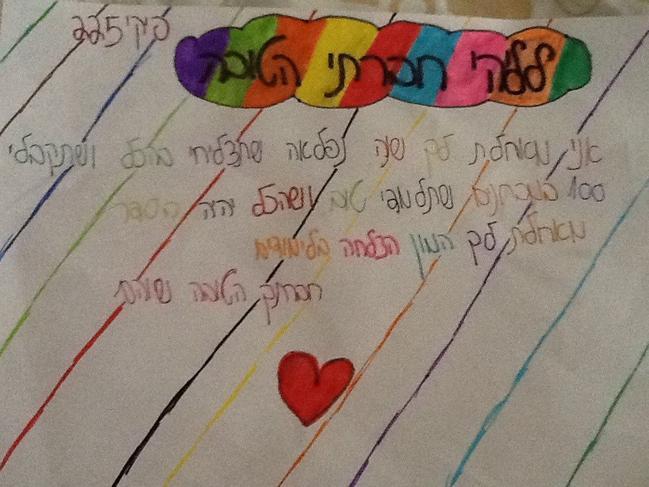 לליהי חברתי הטובה
אני מאחלת לך שנה נפלאה שתצליחי בהכל ושתקבלי
100 במבחנים שתלמדי טוב ושהכל יהיה בסדר
מאחלת לך המון הצלחה בלימודים
חברתך הטובה